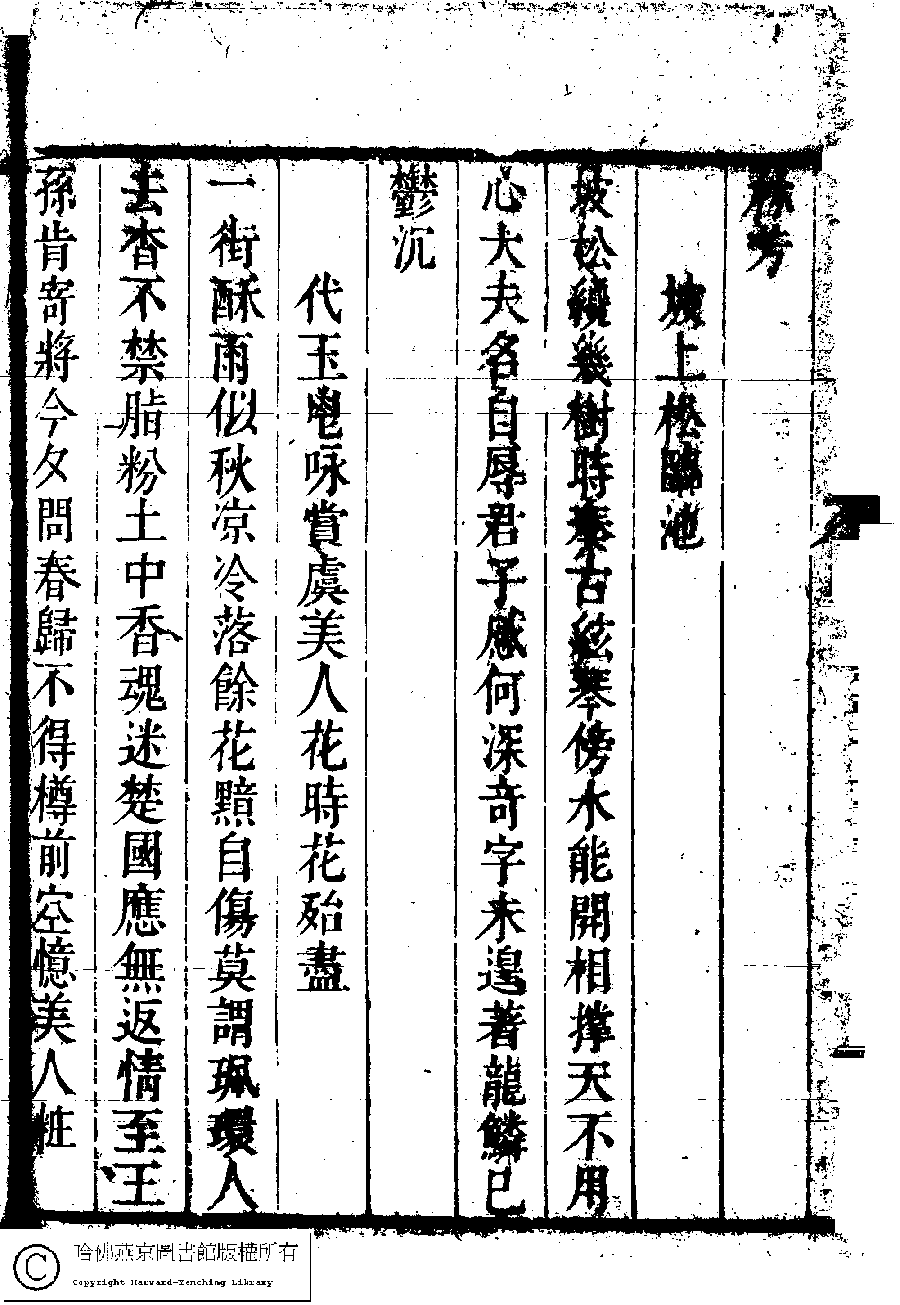 林芳
坡上松臨池
坡松纔幾樹時奏古絃琴傍水能開相撐天不用
心大夫名自辱君子感何深奇字未遑著龍鱗已
鬱沉
代玉黽咏賞虞美人花時花殆盡
一街酥雨似秋凉冷落餘花黯自傷莫謂珮環人
去杳不禁脂粉土中香魂迷楚國應無返情至王
孫肯寄將今夕問春歸不得樽前空憶美人粧
哈佛燕京圖書館版權所有
Copyright Harvard-Yenching Library